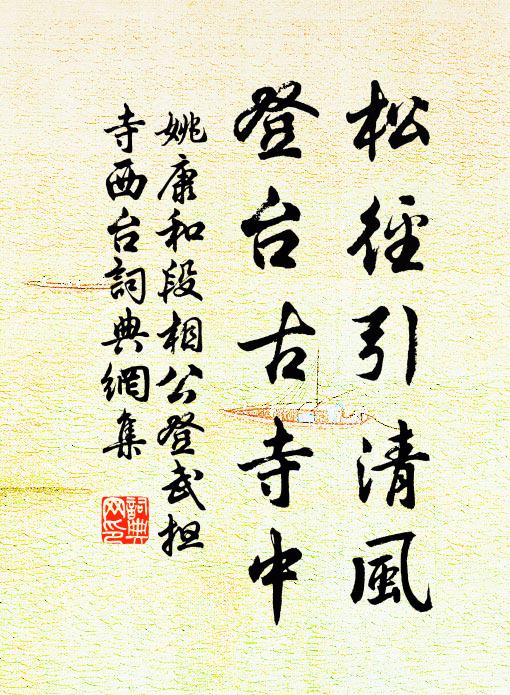 松徑引清風
登台古寺中
姚康和段相公登武担
寺西台詞典網集
詞典
网印